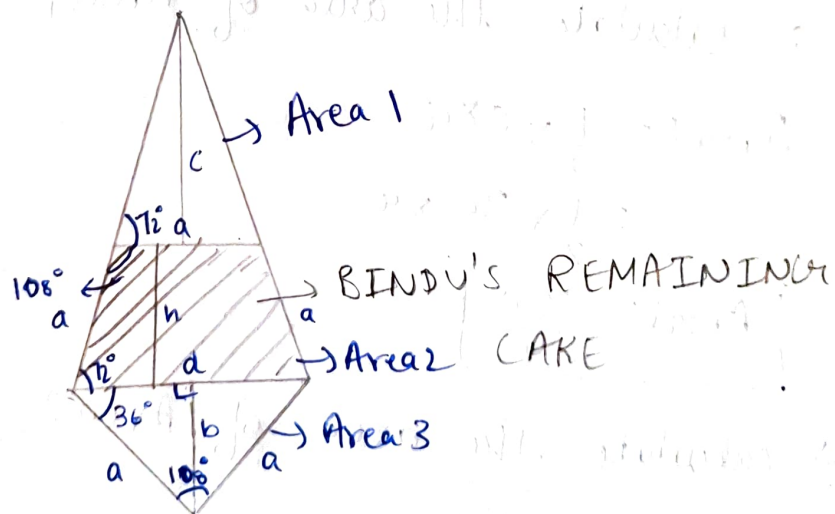 → Area 1
c
72° a
108° ← → BINDU'S REMAINING
a h a
72° d → Area2 CAKE
36°
b → Area 3
a 108° a